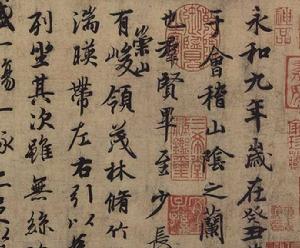 永和九年歲在癸丑
于會稽山陰之蘭
也羣賢畢至少長
有崇山峻領茂林脩竹
湍暎帶左右引以
列坐其次雖無絲
一觴一詠